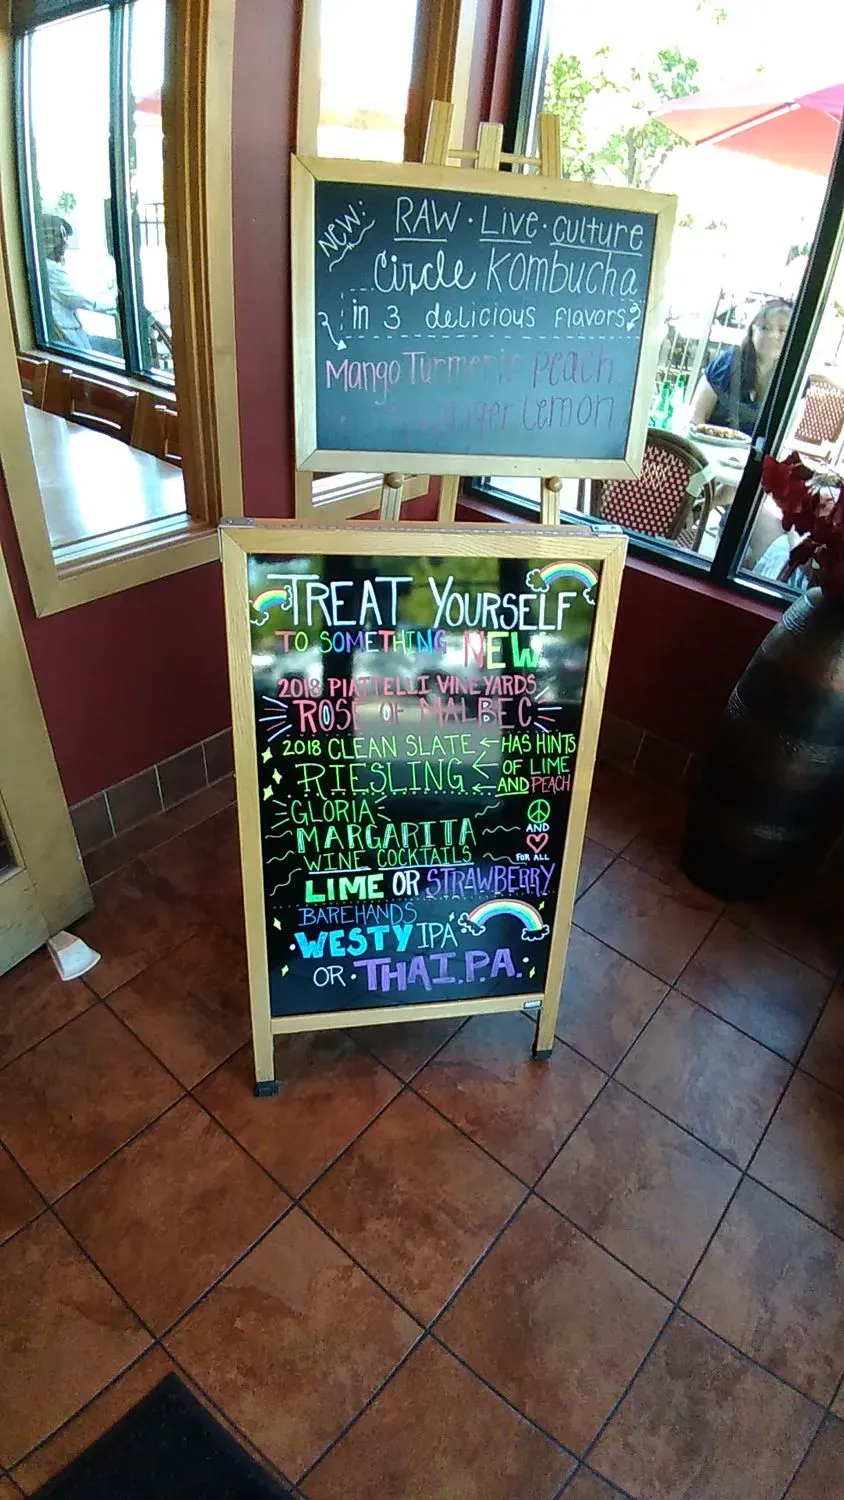 NEW:
RAW · Live · Culture
Circle Kombucha
in 3 delicious flavors
Mango Turmeric Peach
Ginger Lemon
TREAT YOURSELF
TO SOMETHING NEW
2018 PIATTELLI VINEYARDS
ROSÉ OF MALBEC
2018 CLEAN SLATE ← HAS HINTS
RIESLING ← OF LIME
← AND PEACH
GLORIA
MARGARITA AND
WINE COCKTAILS FOR ALL
LIME OR STRAWBERRY
BAREHANDS
· WESTY IPA
OR · THAI.P.A. ·